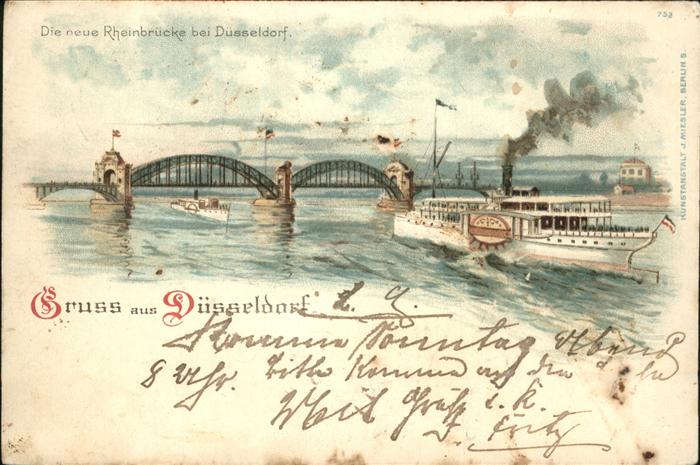 Die neue Rheinbrücke bei Düsseldorf.
753
KUNSTANSTALT J. MIESLER, BERLIN S.
Gruss aus Düsseldorf
Komme Sonntag Abend
8 Uhr. Bitte komme an den
Mit Gruß
Fritz